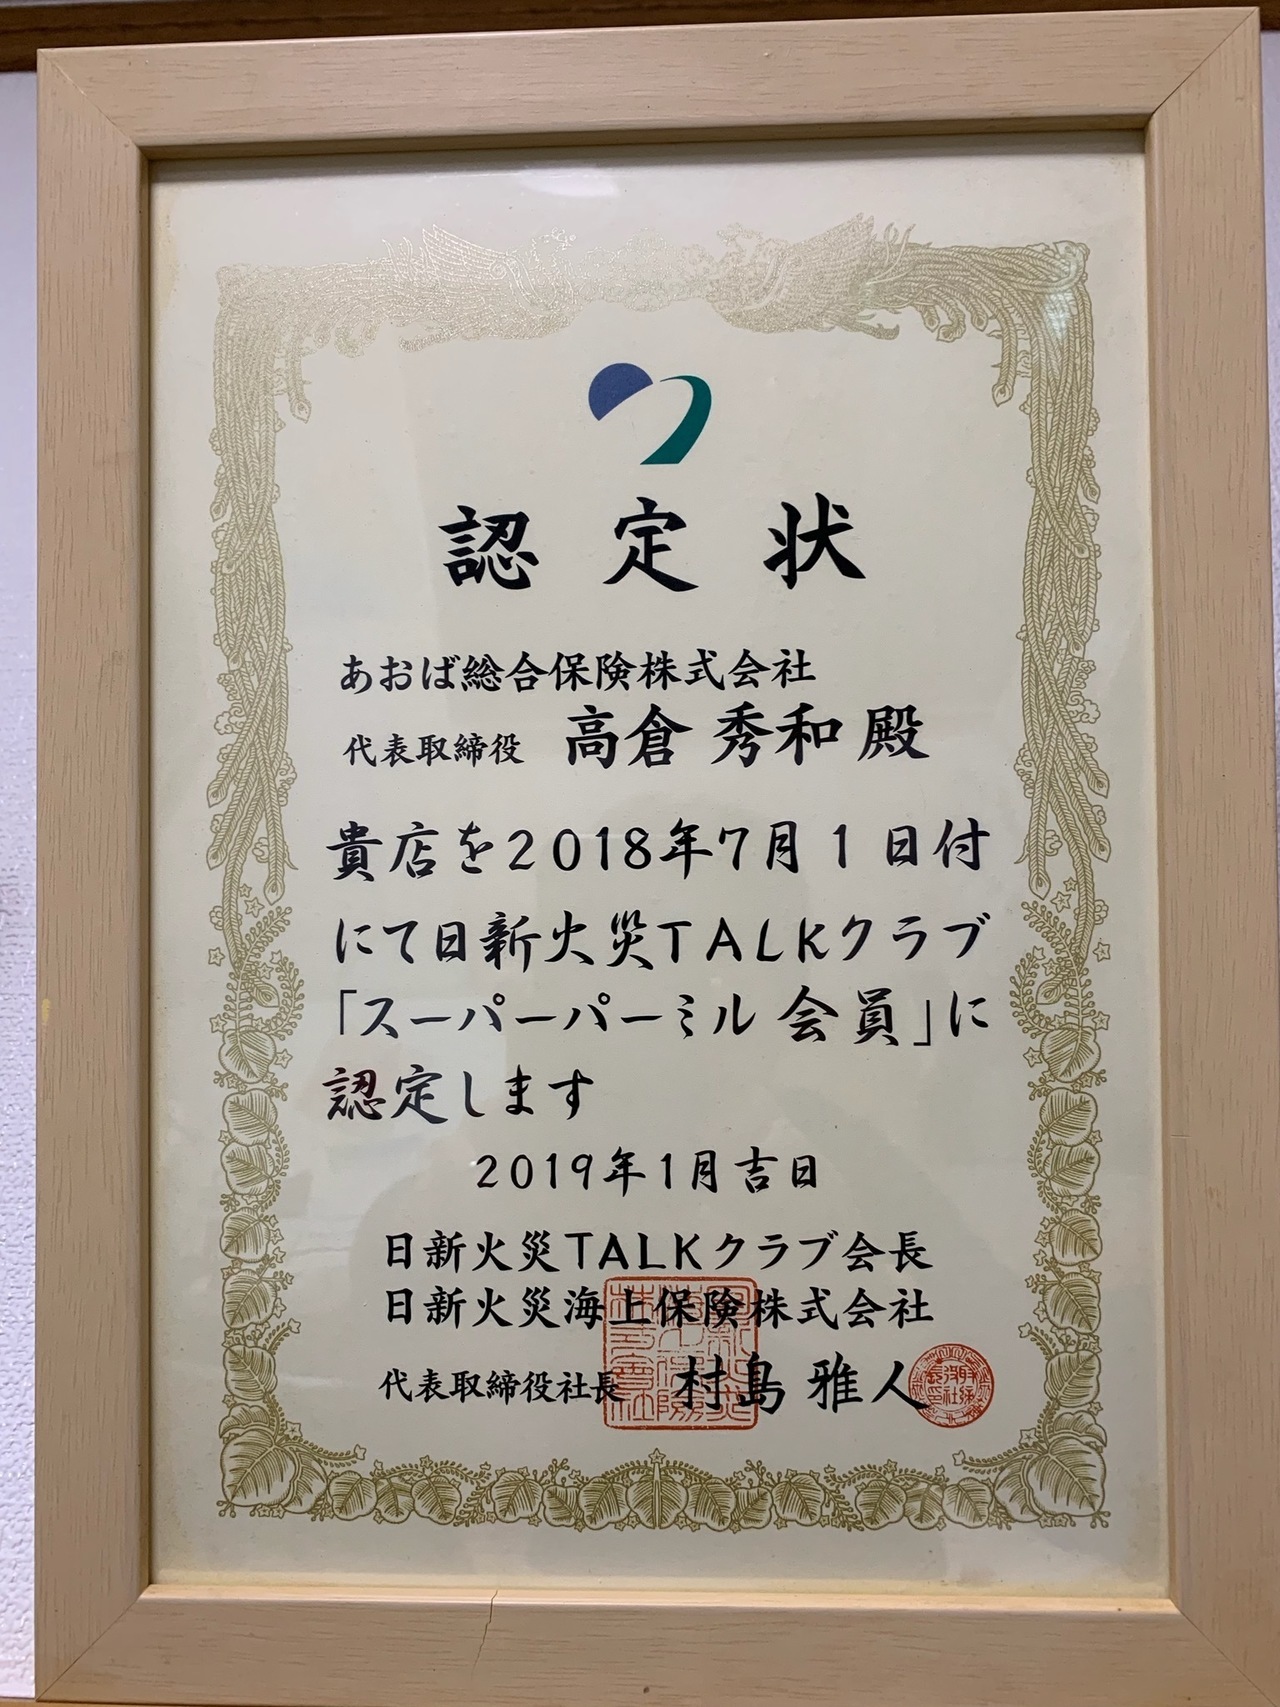 認定状
あおば総合保険株式会社
代表取締役 高倉 秀和 殿
貴店を2018年7月1日付
にて日新火災TALKクラブ
「スーパーパーミル会員」に
認定します
2019年1月吉日
日新火災TALKクラブ会長
日新火災海上保険株式会社
代表取締役社長 村島 雅人